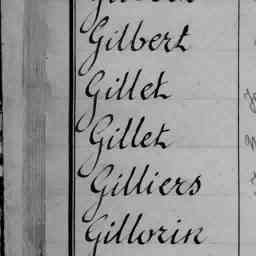 Gilbert
Gillet
Gillet
Gilliers
Gillorin